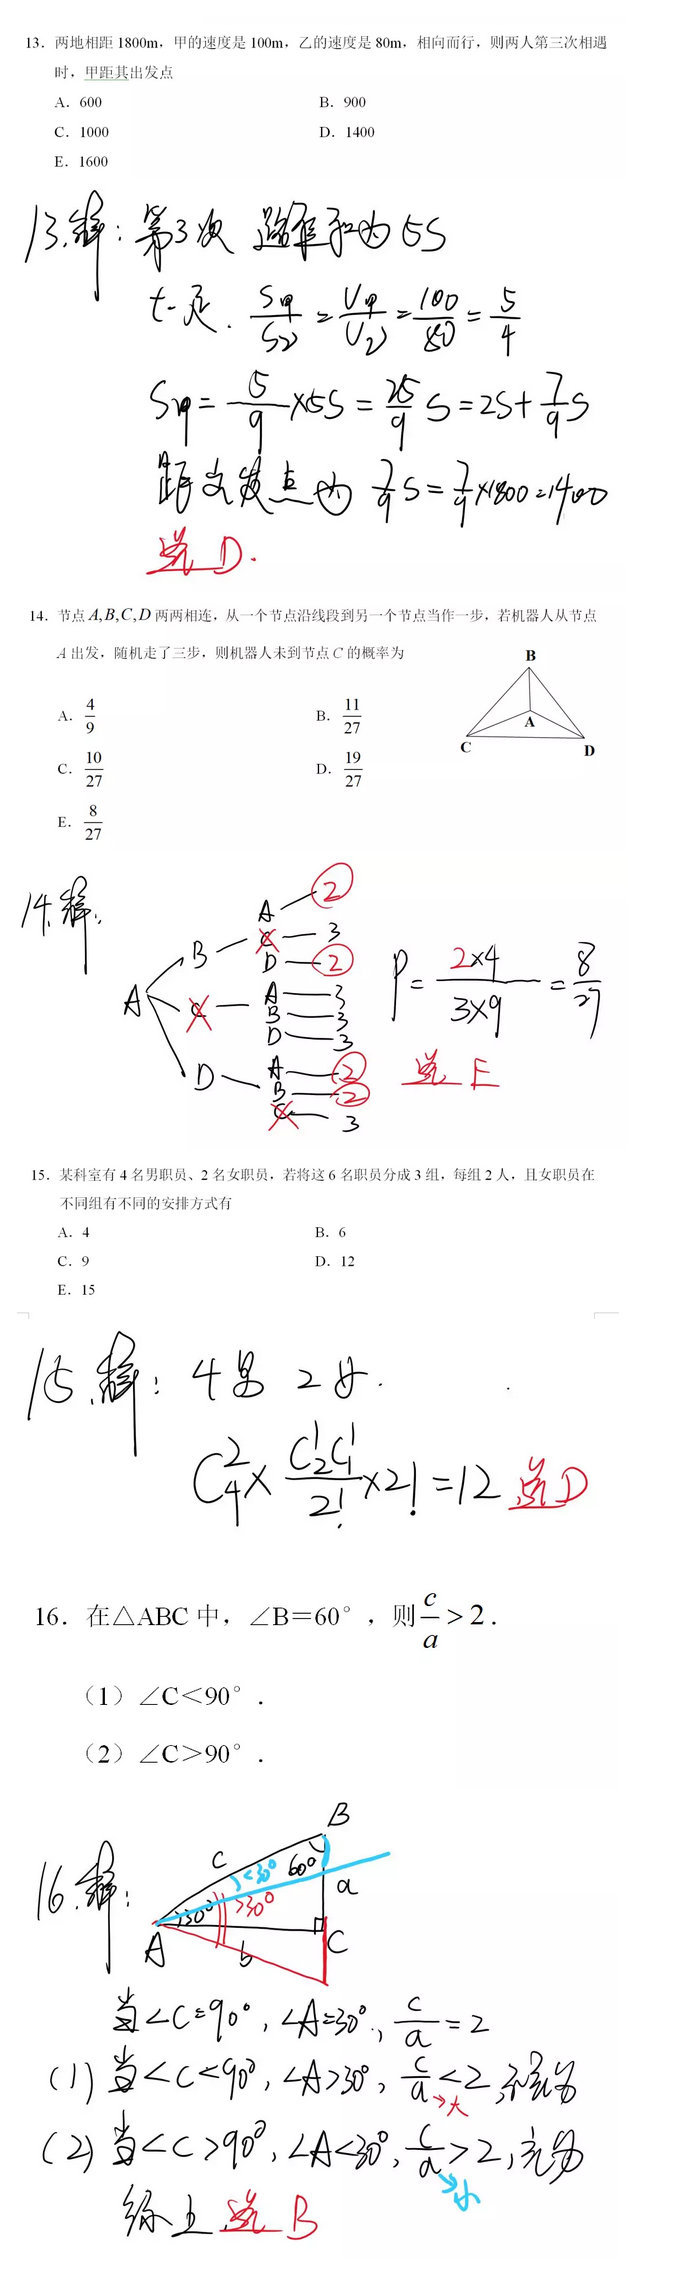 13. 两地相距 1800m，甲的速度是 100m，乙的速度是 80m，相向而行，则两人第三次相遇
时，甲距其出发点
A. 600 B. 900
C. 1000 D. 1400
E. 1600
13.解：第3次 路程和为5S
t一定. S甲/S乙=V甲/V乙=100/80=5/4
S甲=5/9×5S=25/9 S=2S+7/9 S
距出发点为 7/9 S=7/9×1800=1400
选D.
14. 节点 A,B,C,D 两两相连，从一个节点沿线段到另一个节点当作一步，若机器人从节点
A 出发，随机走了三步，则机器人未到节点 C 的概率为
A. 4/9 B. 11/27
C. 10/27 D. 19/27
E. 8/27
B
A
C D
14.解：
A
B A 2
C 3
D 2
C A 3
B 3
D 3
D A 2
B 2
C 3
P=2×4/3×9=8/27
选E
15. 某科室有 4 名男职员、2 名女职员，若将这 6 名职员分成 3 组，每组 2 人，且女职员在
不同组有不同的安排方式有
A. 4 B. 6
C. 9 D. 12
E. 15
15.解：4男 2女.
C₄²×C₂¹C₁¹/2!×2!=12 选D
16. 在△ABC 中，∠B＝60°，则c/a＞2.
（1）∠C＜90°.
（2）∠C＞90°.
16.解：
B
c <30° 60° a
30° >30°
A b C
当∠C=90°,∠A=30°,c/a=2
(1)当∠C<90°,∠A>30°,c/a<2,不充分
→大
(2)当∠C>90°,∠A<30°,c/a>2,充分
→小
综上选B